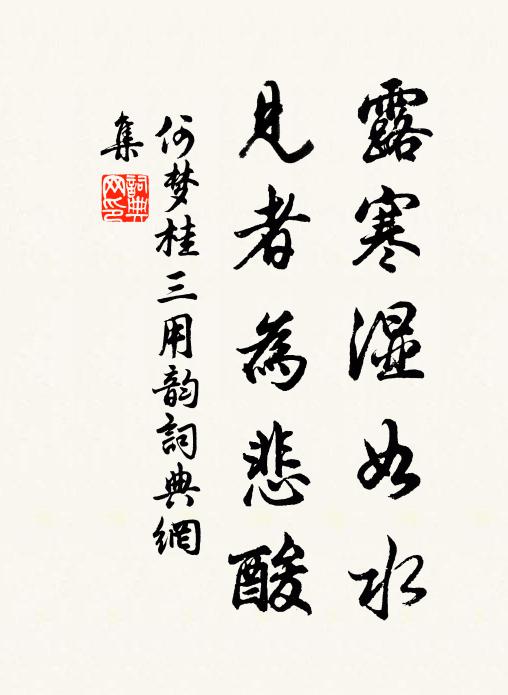 露寒濕如水
見者為悲酸
何梦桂三用韵詞典網
集
詞典网印